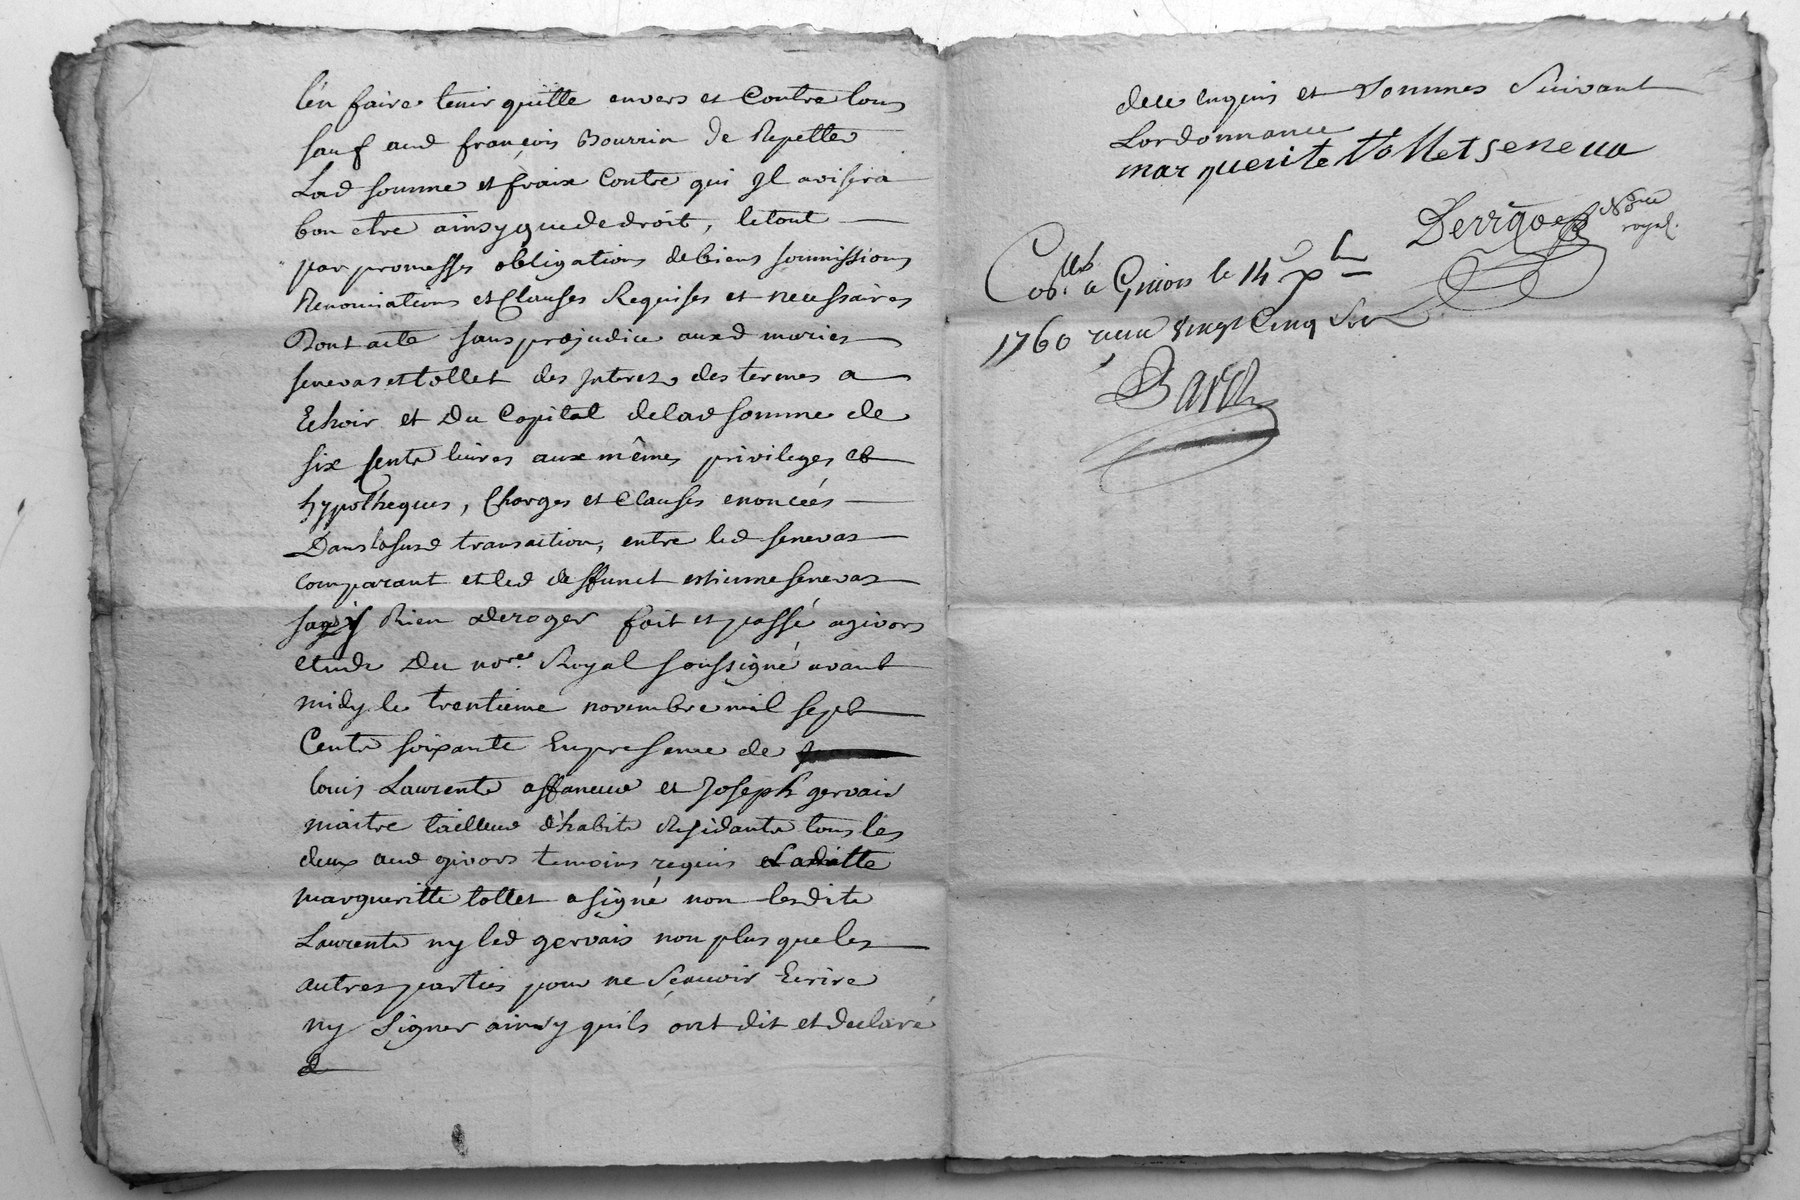 l'en faire tenir quitte envers et Contre tous
sauf aud françois Bourrin de Repetter
Lad somme et fraix Contre qui Jl avisera
bon etre ainsy que de droit, le tout
par promesses obligations de biens soumissions
Renonciations et Clauses Requises et necessaires
Dont acte sans prejudice auxd maries
senevas et tollet des Jnterez des termes a
Echoir et Du Capital delad somme de
six Cents livres aux mêmes privileges et
hypotheques, Charges et Clauses enoncées
Dans lasusd transaction, entre led senevas
comparant et led deffunct estienne senevas
sans y Rien deroger fait et passé agivors
etude Du nore Royal soussigné avant
midy le trentieme novembre mil sept
Cents soixante En presence de
louis Laurents affaneur et Joseph gervais
maitre tailleur d'habits Residants tous les
deux aud givors temoins requis et Ladatte
margueritte tollet a signé non lesdits
Laurents ny led gervais non plus que les
autres parties pour ne Sçavoir Ecrire
ny Signer ainsy quils ont dit et declaré
de
dece enquis et Sommes Suivant
Lordonnance
marguerite tollet seneva
Nore
royal.
a Givors le 14
1760 recu vingt Cinq